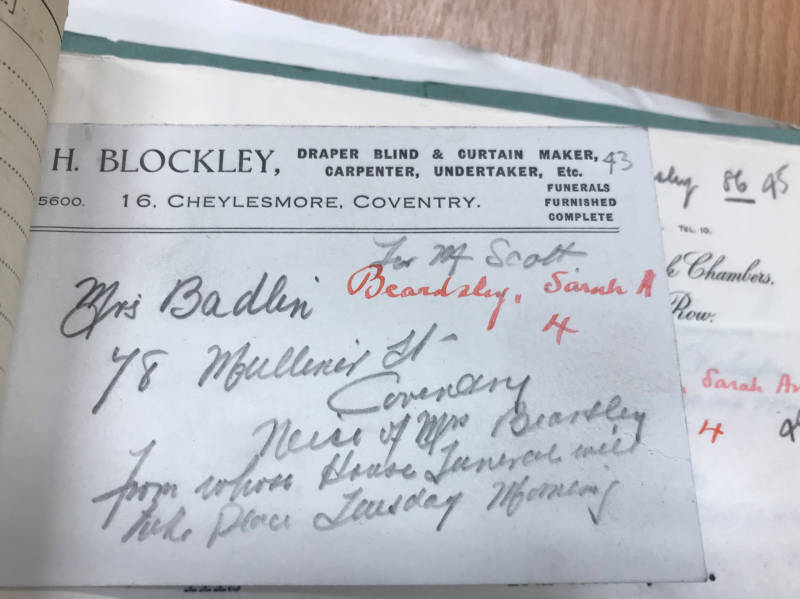 H. BLOCKLEY, DRAPER BLIND & CURTAIN MAKER, 43
CARPENTER, UNDERTAKER, Etc.
5600. 16, CHEYLESMORE, COVENTRY.
FUNERALS
FURNISHED
COMPLETE
For Mr Scott
Mrs Badlin Beardsley, Sarah A
4
78 Mulliner St
Coventry
Neice of Mrs Beardsley
from whose House Funeral will
take Place Tuesday Morning
86 95
TEL. 10.
Chambers.
Row.
Sarah An
4